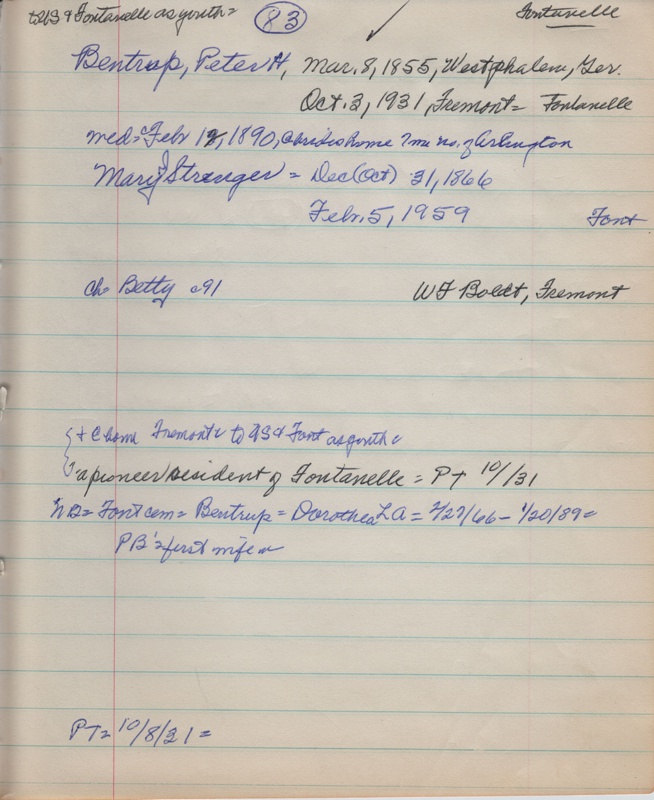 to US & Fontanelle as youth = (83) Fontanelle
Bentrup, Peter H, Mar. 8, 1855, Westphalen, Ger.
Oct. 3, 1931, Fremont = Fontanelle
med = Febr 12, 1890, @ brides home 7 mi no. of Arlington
Mary J Stranger = Dec (Oct) 31, 1866
Febr. 5, 1959 Font
ch = Betty c91 WF Boldt, Fremont
+ @ home Fremont = to US & Font as youth =
"a pioneer resident of Fontanelle = PT 10//31
NB = Font cem = Bentrup = Dorothea LA = 2/27/66 - 1/20/89 =
PB's = first wife =
PT = 10/8/31 =